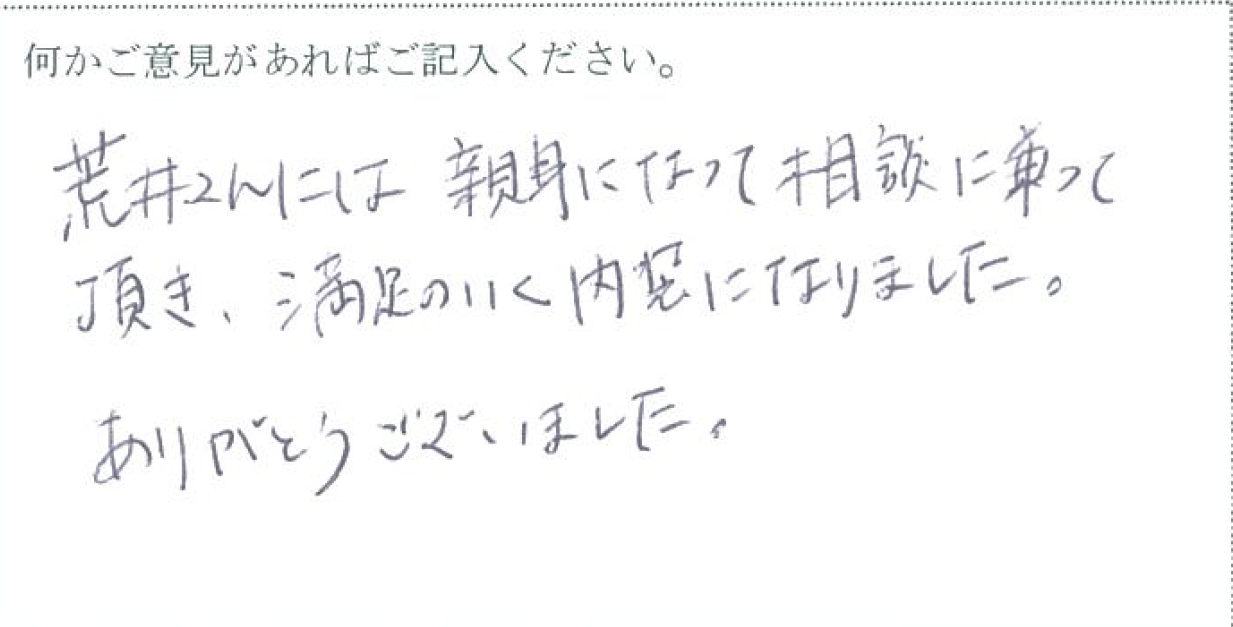 何かご意見があればご記入ください。
荒井さんには親身になって相談に乗って
頂き、満足のいく内装になりました。
ありがとうございました。